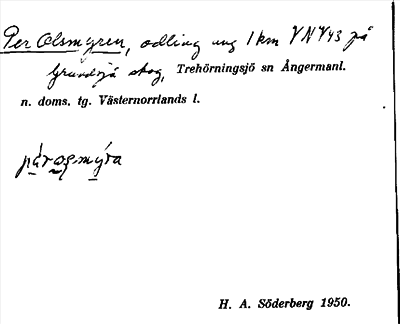 Per Olsmyren, odling ung 1 km VNV43 på
Grundsjö skog, Trehörningsjö sn Ångermanl.
n. doms. tg. Västernorrlands l.
H. A. Söderberg 1950.